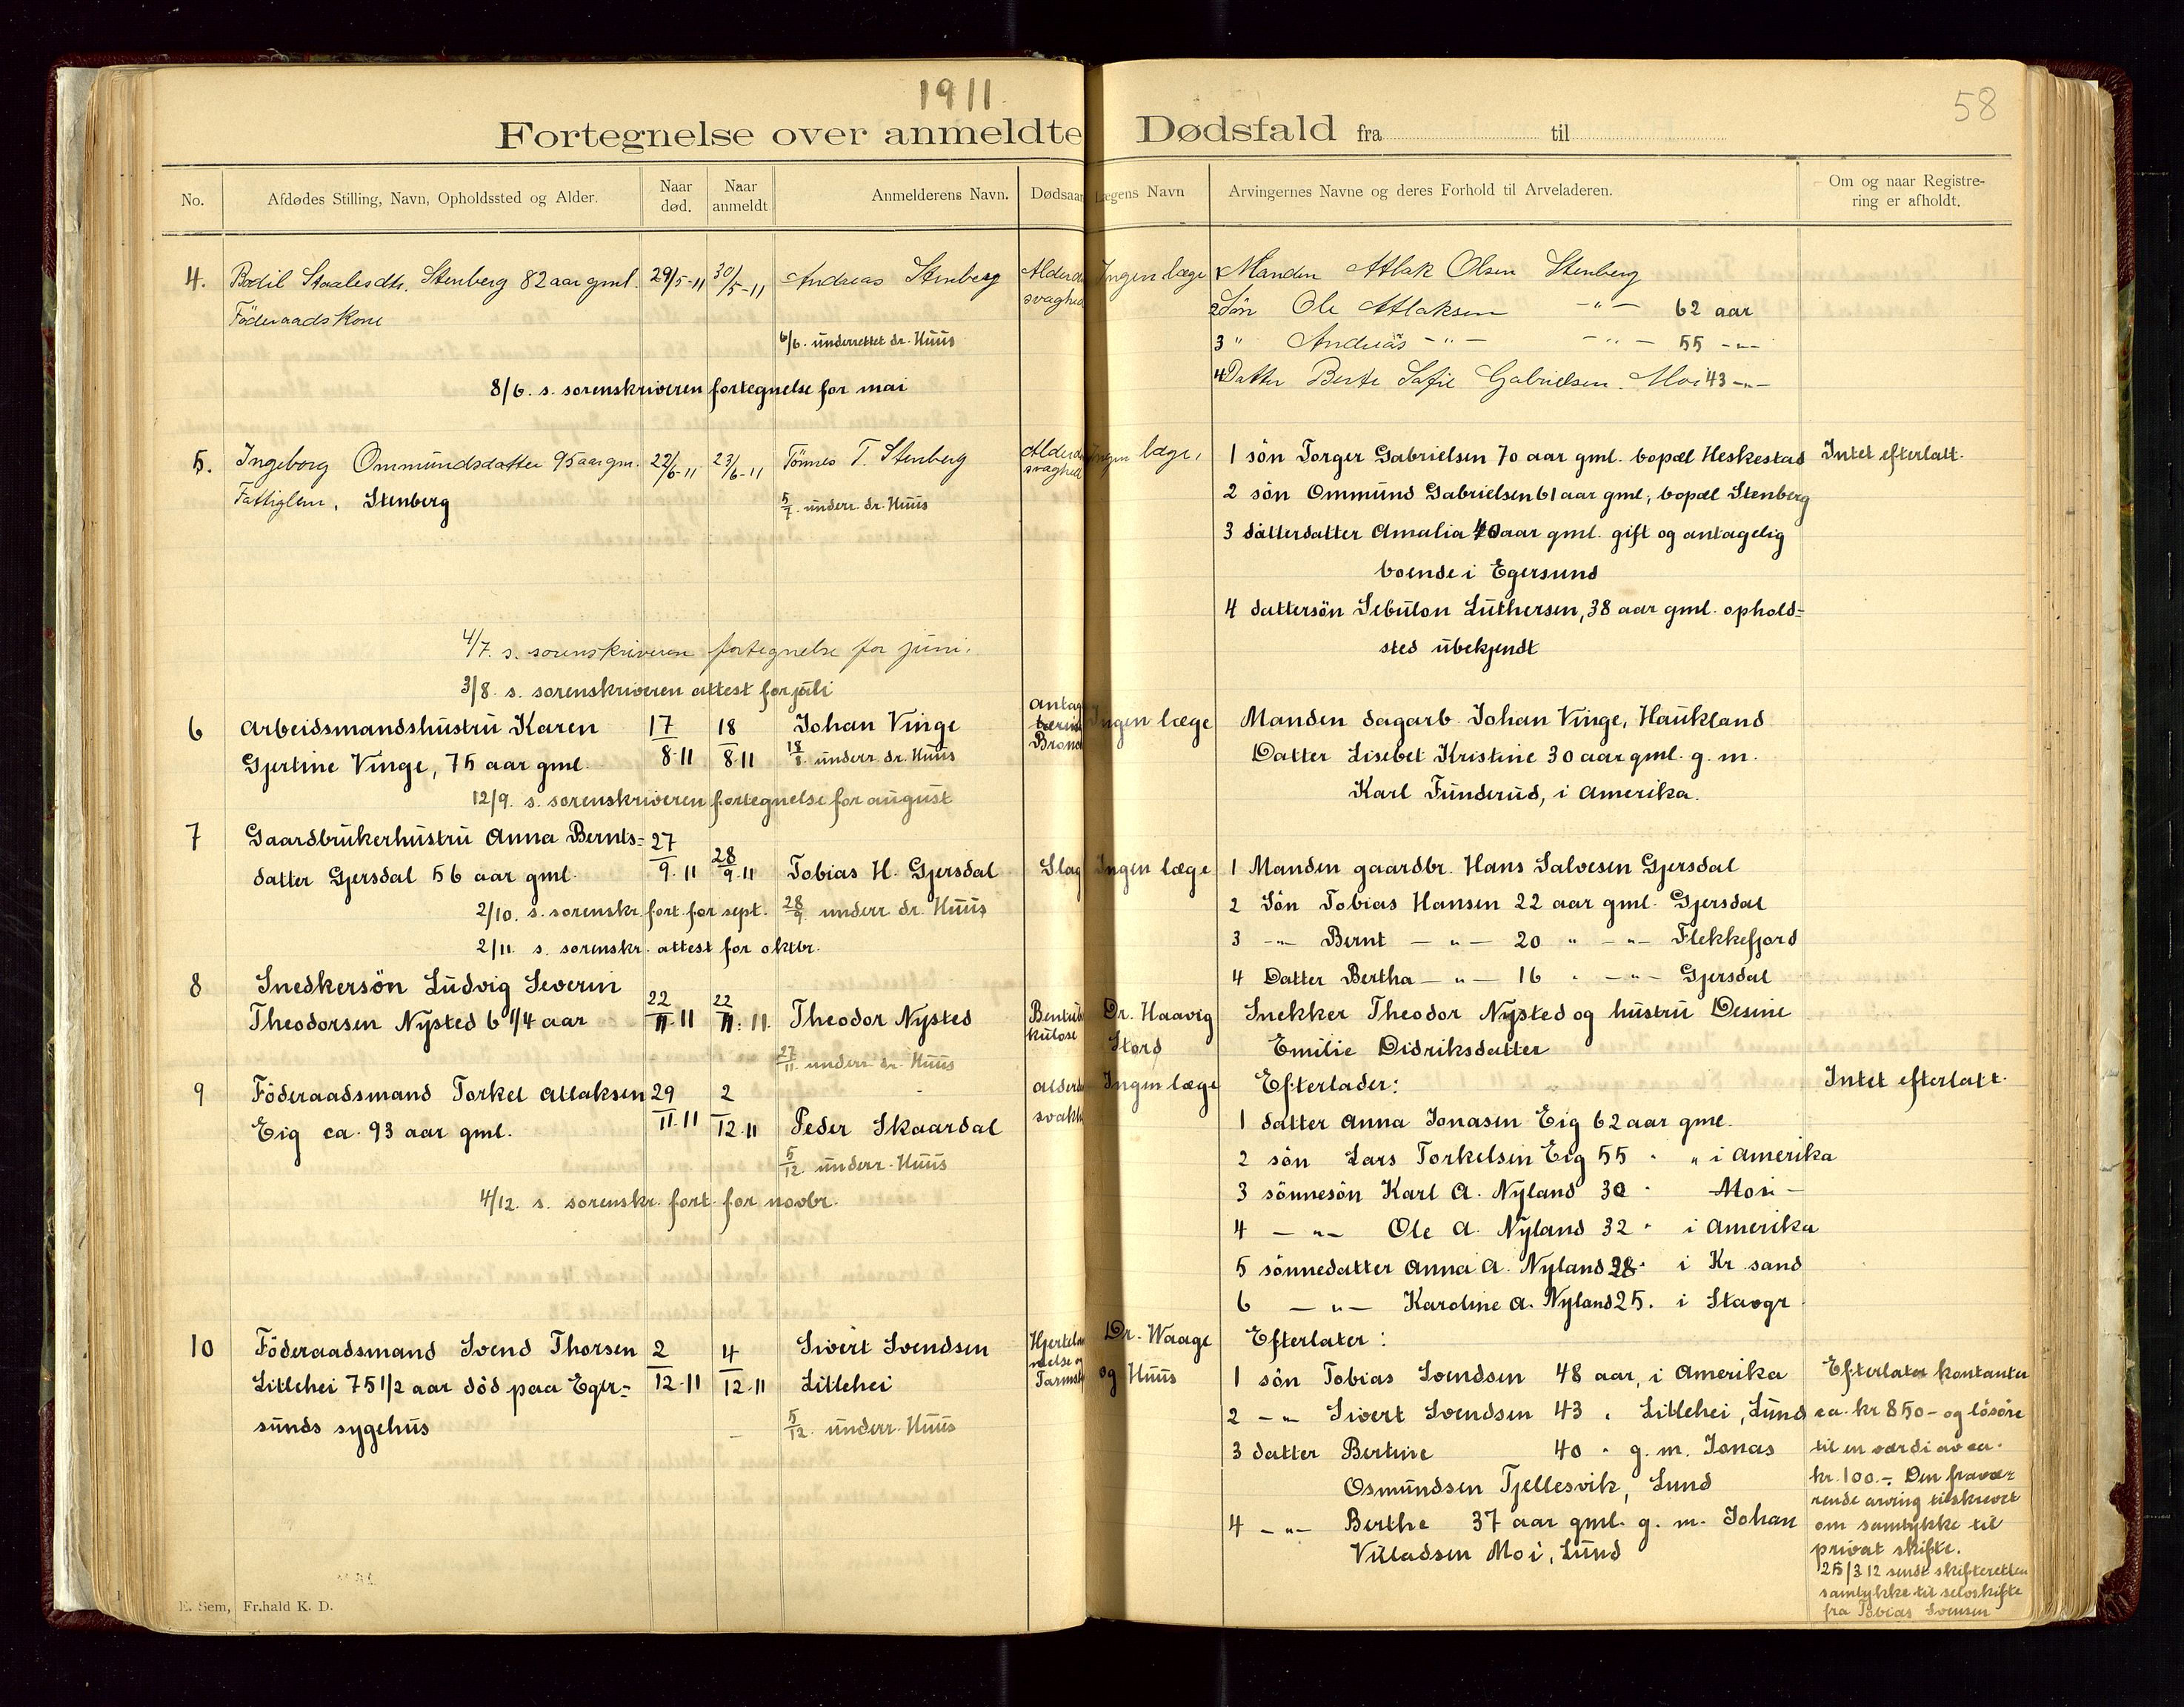 1911
58
Fortegnelse over anmeldte Dødsfald fra til
No.
Afdødes Stilling, Navn, Opholdssted og Alder.
Naar død.
Naar anmeldt
Anmelderens Navn.
Dødsaar
Lægens Navn
Arvingernes Navne og deres Forhold til Arveladeren.
Om og naar Registre-
ring er afholdt.
4. Bodil Staalesdtr. Stenberg 82 aar gml. 29/5-11 30/5-11 Andreas Stenberg Alderd Ingen læge
Föderaadskone svaghed
6/6. underrettet dr. Huus
8/6. s. sorenskriveren fortegnelse for mai
1 Manden Atlak Olsen Stenberg
2 Søn Ole Atlaksen -"- 62 aar
3 " Andreas -"- -"- 55 -"-
4 Datter Berte Sofie Gabrielsen. Moi 43 -"-
5. Ingeborg Ommundsdatter 95 aar gm. 22/6-11 23/6-11 Tönnes T. Stenberg Alderd Ingen læge,
Fattiglem, Stenberg svaghed
5/7. underr. dr. Huus
1 sön Torger Gabrielsen 70 aar gml. bopæl Heskestad
2 sön Ommund Gabrielsen 61 aar gml, bopæl Stenberg
3 datterdatter Amalia 40 aar gml. gift og antagelig
boende i Egersund
4 dattersön Sebulon Luthersen, 38 aar gml. ophold-
sted ubekjendt
Intet efterlatt.
4/7. s. sorenskriveren fortegnelse for juni.
3/8. s. sorenskriveren attest for juli
6 Arbeidsmandshustru Karen 17/8-11 18/8-11 Johan Vinge Antag Ingen læge
Gjertine Vinge, 75 aar gml. 18/8. underr. dr. Huus Bronc
12/9. s. sorenskriveren fortegnelse for august
Manden dagarb. Johan Vinge, Haukland
Datter Lisebet Kristine 30 aar gml. g. m.
Karl Funderud, i Amerika.
7 Gaardbrukerhustru Anna Bernts-
datter Gjersdal 56 aar gml. 27/9.11 28/9.11 Tobias H. Gjersdal Slag Ingen læge
2/10. s. sorenskr. fort. for sept. 28/9 underr. dr. Huus
2/11. s. sorenskr. attest for oktbr.
1 Manden gaardbr. Hans Salvesen Gjersdal
2 Sön Tobias Hansen 22 aar gml. Gjersdal
3 -"- Bernt -"- 20 " -"- Flekkefjord
4 Datter Bertha -"- 16 " -"- Gjersdal
8 Snedkersön Ludvig Severin
Theodorsen Nysted 6 1/4 aar 22/11-11 22/11.11. Theodor Nysted Bentub Dr. Haavig
kulose Stord
27/11 underr dr. Huus
Snekker Theodor Nysted og hustru Desine
Emilie Didriksdatter
9 Föderaadsmand Torkel Atlaksen 29/11.11 2/12.11 Peder Skaardal alderd Ingen læge
Eig ca. 93 aar gml. svakh
5/12. underr. Huus
4/12. s. sorenskr. fort. for novbr.
Efterlader:
1 datter Anna Jonasen Eig 62 aar gml.
2 sön Lars Torkelsen Eig 55 " " i Amerika
3 sönnesön Karl A. Nyland 30 " Mosi -
4 -"- Ole A. Nyland 32 " i Amerika
5 sönnedatter Anna A. Nyland 28 " i Kr. sand
6 -"- Karoline A. Nyland 25. i Stavgr.
Intet efterlatt.
10 Föderaadsmand Svend Thorsen 2/12.11 4/12.11 Sivert Svendsen Hjertel Dr. Waage
Litlehei 75 1/2 aar död paa Eger- Litlehei melse og og Huus
sunds sygehus 5/12. underr. Huus Tarmsl
Efterlater:
1 sön Tobias Svendsen 48 aar, i Amerika
2 -"- Sivert Svendsen 43 " Litlehei, Lund
3 datter Bertine 40 " g. m. Jonas
Osmundsen Tjellesvik, Lund
4 -"- Berthe 37 aar gml. g. m. Johan
Villadsen Moi, Lund
Efterlater kontanter
ca. kr 850- og lösöre
til en værdi av ca.
kr. 100.-. Den fravæ-
rende arving tilskrevet
om samtykke til
privat skifte.
25/3 12 sendt skifteretten
samtykke til selvskifte
fra Tobias Svensen
E. Sem, Fr.hald K. D.